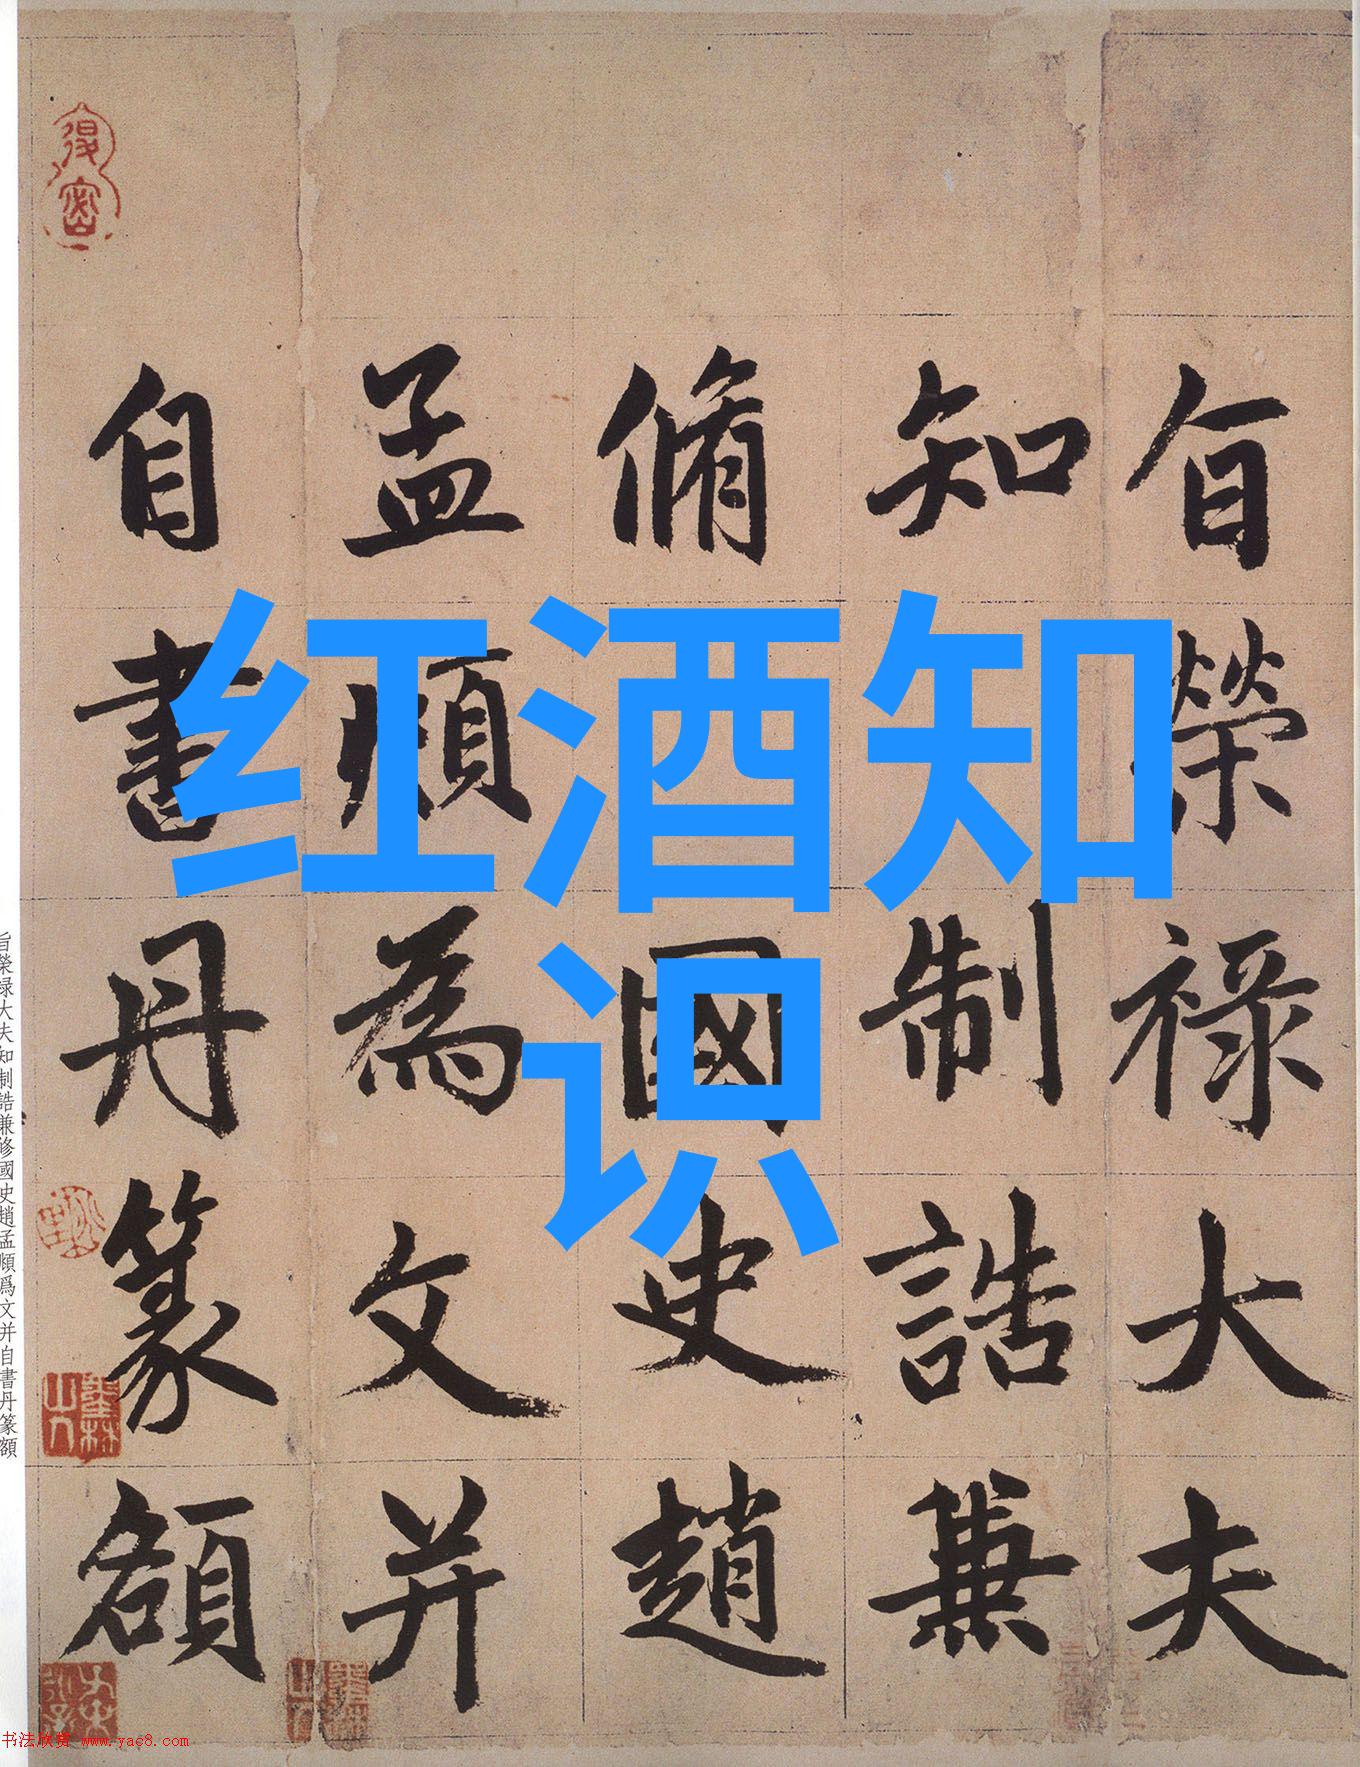 旨榮祿大夫
知制誥兼
脩國史趙
孟頫為文并
自書丹篆額
红酒知
识
旨榮禄大夫知制誥兼修國史趙孟頫爲文并自書丹篆額
书法欣赏 www.yac8.com